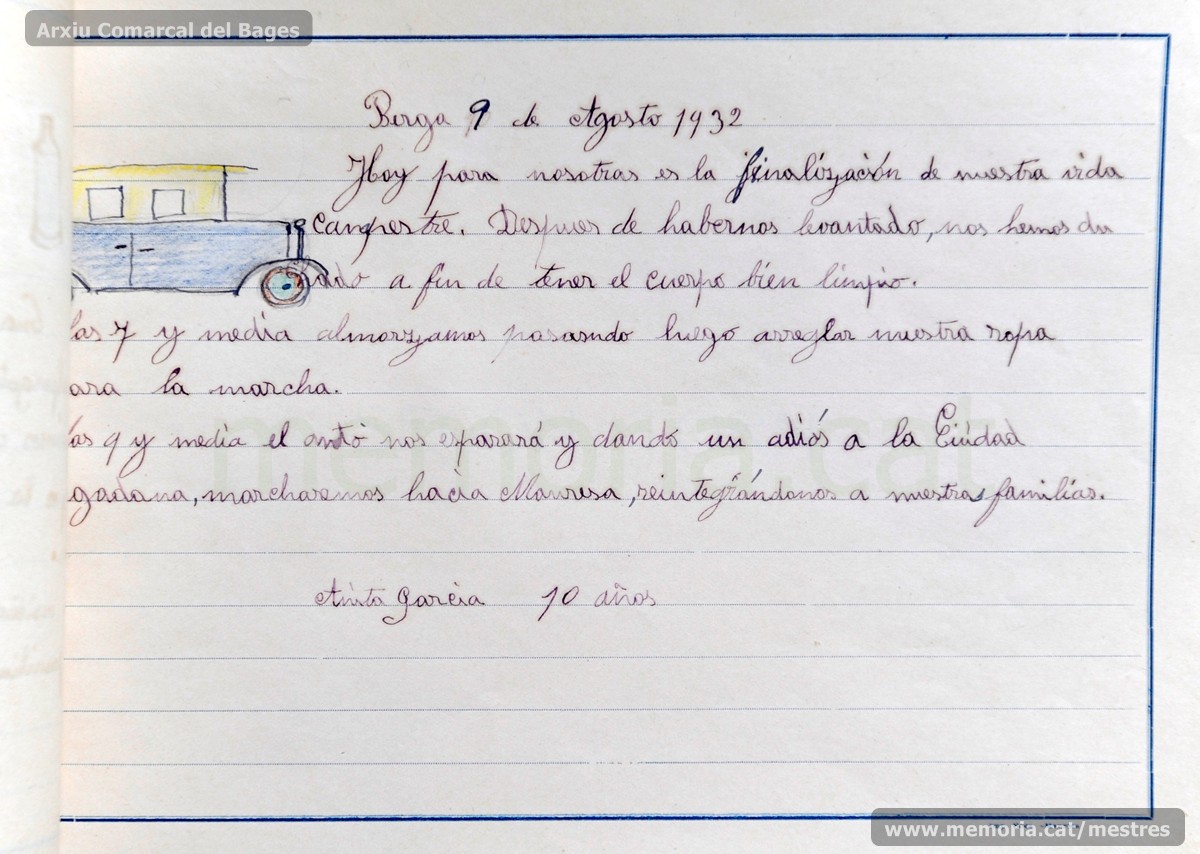 Arxiu Comarcal del Bages
Berga 9 de Agosto 1932
Hoy para nosotras es la finalización de nuestra vida
campestre. Despues de habernos levantado, nos hemos du
ado a fin de tener el cuerpo bien limpio.
las 7 y media almorzamos pasando luego arreglar nuestra ropa
ara la marcha.
as 9 y media el auto nos esparará y dando un adiós a la Ciudad
gadana, marcharemos hacia Manresa, reintegrándonos a nuestras familias.
Anita Garcia 10 años
memoria.cat
www.memoria.cat/mestres